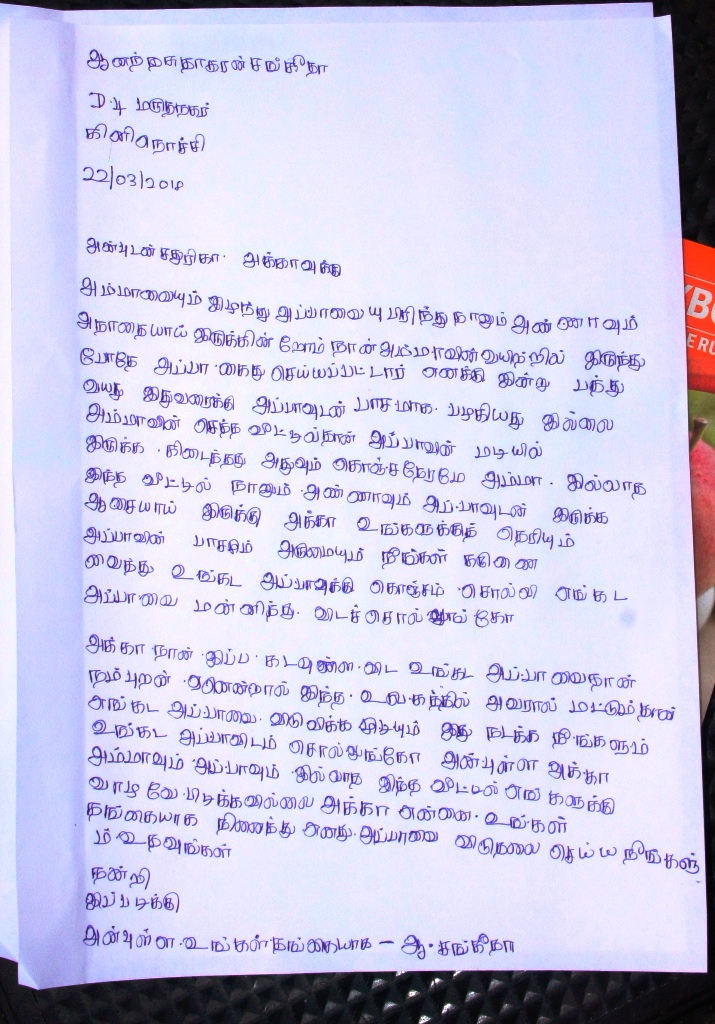 ஆனந்தசுதாகரன் சங்கீதா
D.4 மருதநகர்
கிளிநொச்சி
22/03/2018
அன்புடன் சதுரிகா. அக்காவுக்கு
அம்மாவையும் இழந்து அப்பாவையு பறிந்து நானும் அண்ணாவும்
அநாதையாய் இருக்கின்றோம் நான் அம்மாவின் வயிற்றில் இருந்து
போதே அப்பா கைது செய்யப்பட்டார் எனக்கு இன்று பத்து
வயது இதுவரைக்கு அப்பாவுடன் பாசமாக பழகியது இல்லை
அம்மாவின் செத்த வீட்டில்தான் அப்பாவின் மடியில்
இருக்க கிடைத்தது அதுவும் கொஞ்சநேரமே அம்மா இல்லாத
இந்த வீட்டில் நானும் அண்ணாவும் அப்பாவுடன் இருக்க
ஆசையாய் இருக்கு அக்கா உங்களுக்குத் தெரியும்
அப்பாவின் பாசமும் அருமையும் நீங்கள் கருணை
வைத்து உங்கட அப்பாவுக்கு கொஞ்சம் சொல்லி எங்கட
அப்பாவை மன்னித்து விடச்சொல்லுங்கோ
அக்கா நான் இப்ப கடவுளை விட உங்கட அப்பாவைதான்
நம்புறன் ஏனென்றால் இந்த உலகத்தில் அவரால் மட்டும்தான்
எங்கட அப்பாவை விடுவிக்க முடியும் இது நடக்க நீங்களும்
உங்கட அப்பாவிடம் சொல்லுங்கோ அன்புள்ள அக்கா
அம்மாவும் அப்பாவும் இல்லாத இந்த வீட்டில் எங்களுக்கு
வாழவே பிடிக்கவில்லை அக்கா என்னை உங்கள்
தங்கையாக நினைத்து எனது அப்பாவை விடுதலை செய்ய நீங்களு
ம் உதவுங்கள்
நன்றி
இப்படிக்கு
அன்புள்ள உங்கள் தங்கையாக – ஆ. சங்கீதா